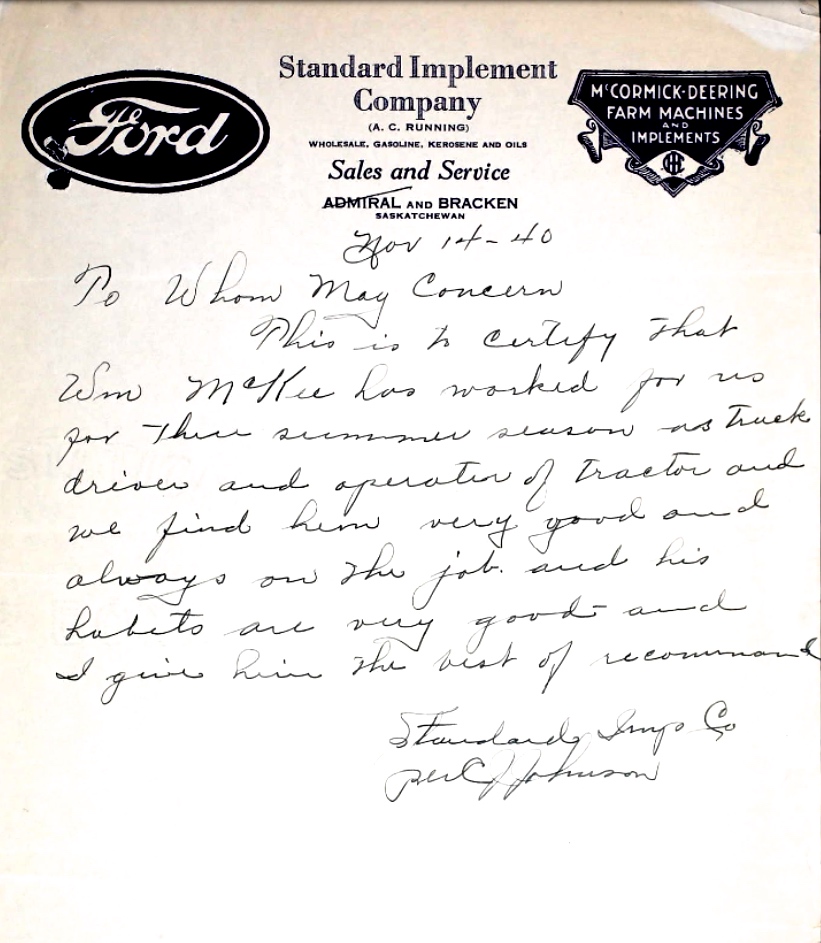 Ford
Standard Implement
Company
(A. C. RUNNING)
WHOLESALE, GASOLINE, KEROSENE AND OILS
Sales and Service
ADMIRAL AND BRACKEN
SASKATCHEWAN
McCORMICK-DEERING
FARM MACHINES
AND
IMPLEMENTS
IHC
Nov 14-40
To Whom May Concern
This is to certify that
Wm McKee has worked for us
for three summer season as truck
driver and operater of tractor and
we find him very good and
always on the job. and his
habits are very good and
I give him the best of recommand
Standard Imp Co
per C J Johnson